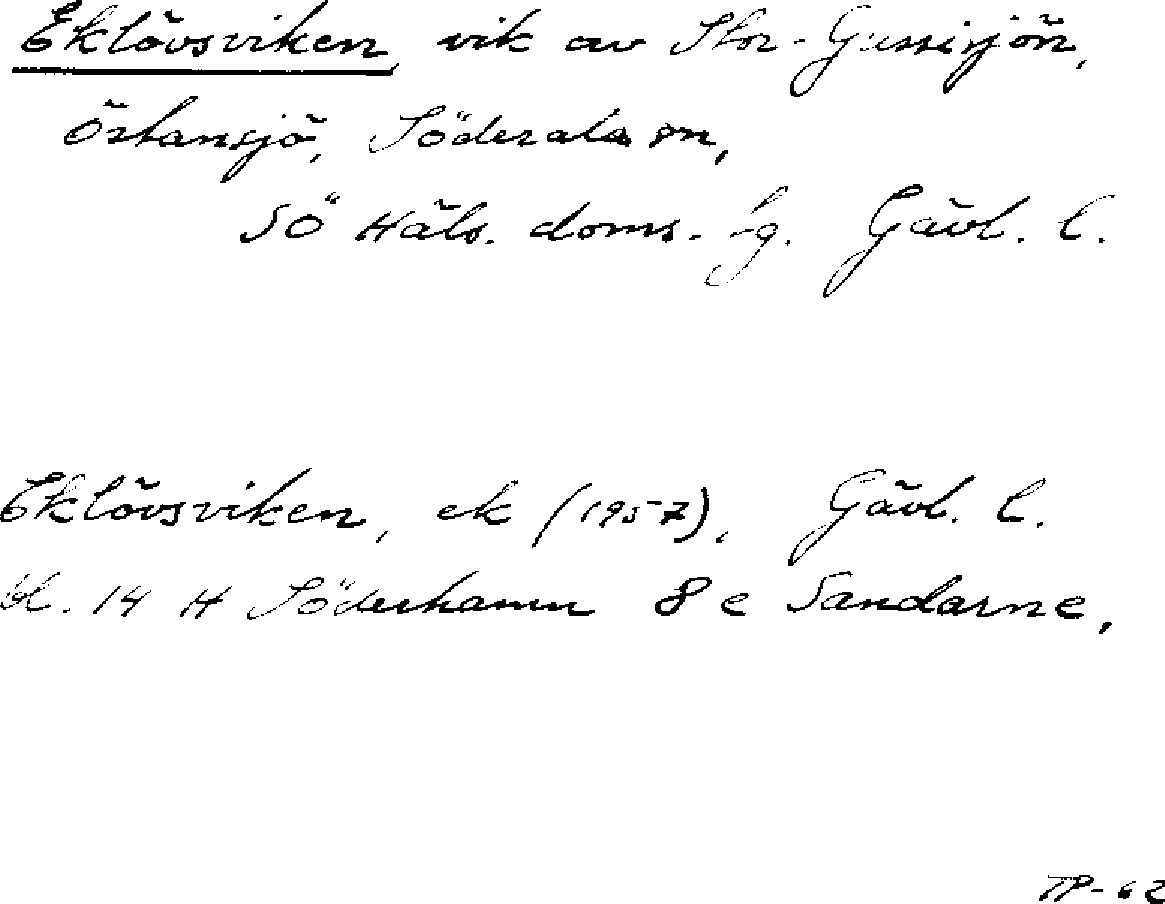 Eklövsviken, vik av Stor-Gussisjön,
Östansjö, Söderala sn,
SÖ Häls. doms. -g. Gävl. l.
Eklövsviken, ek (1957), Gävl. l.
bl. 14 H Söderhamn 8 e Sandarne,
TP-62